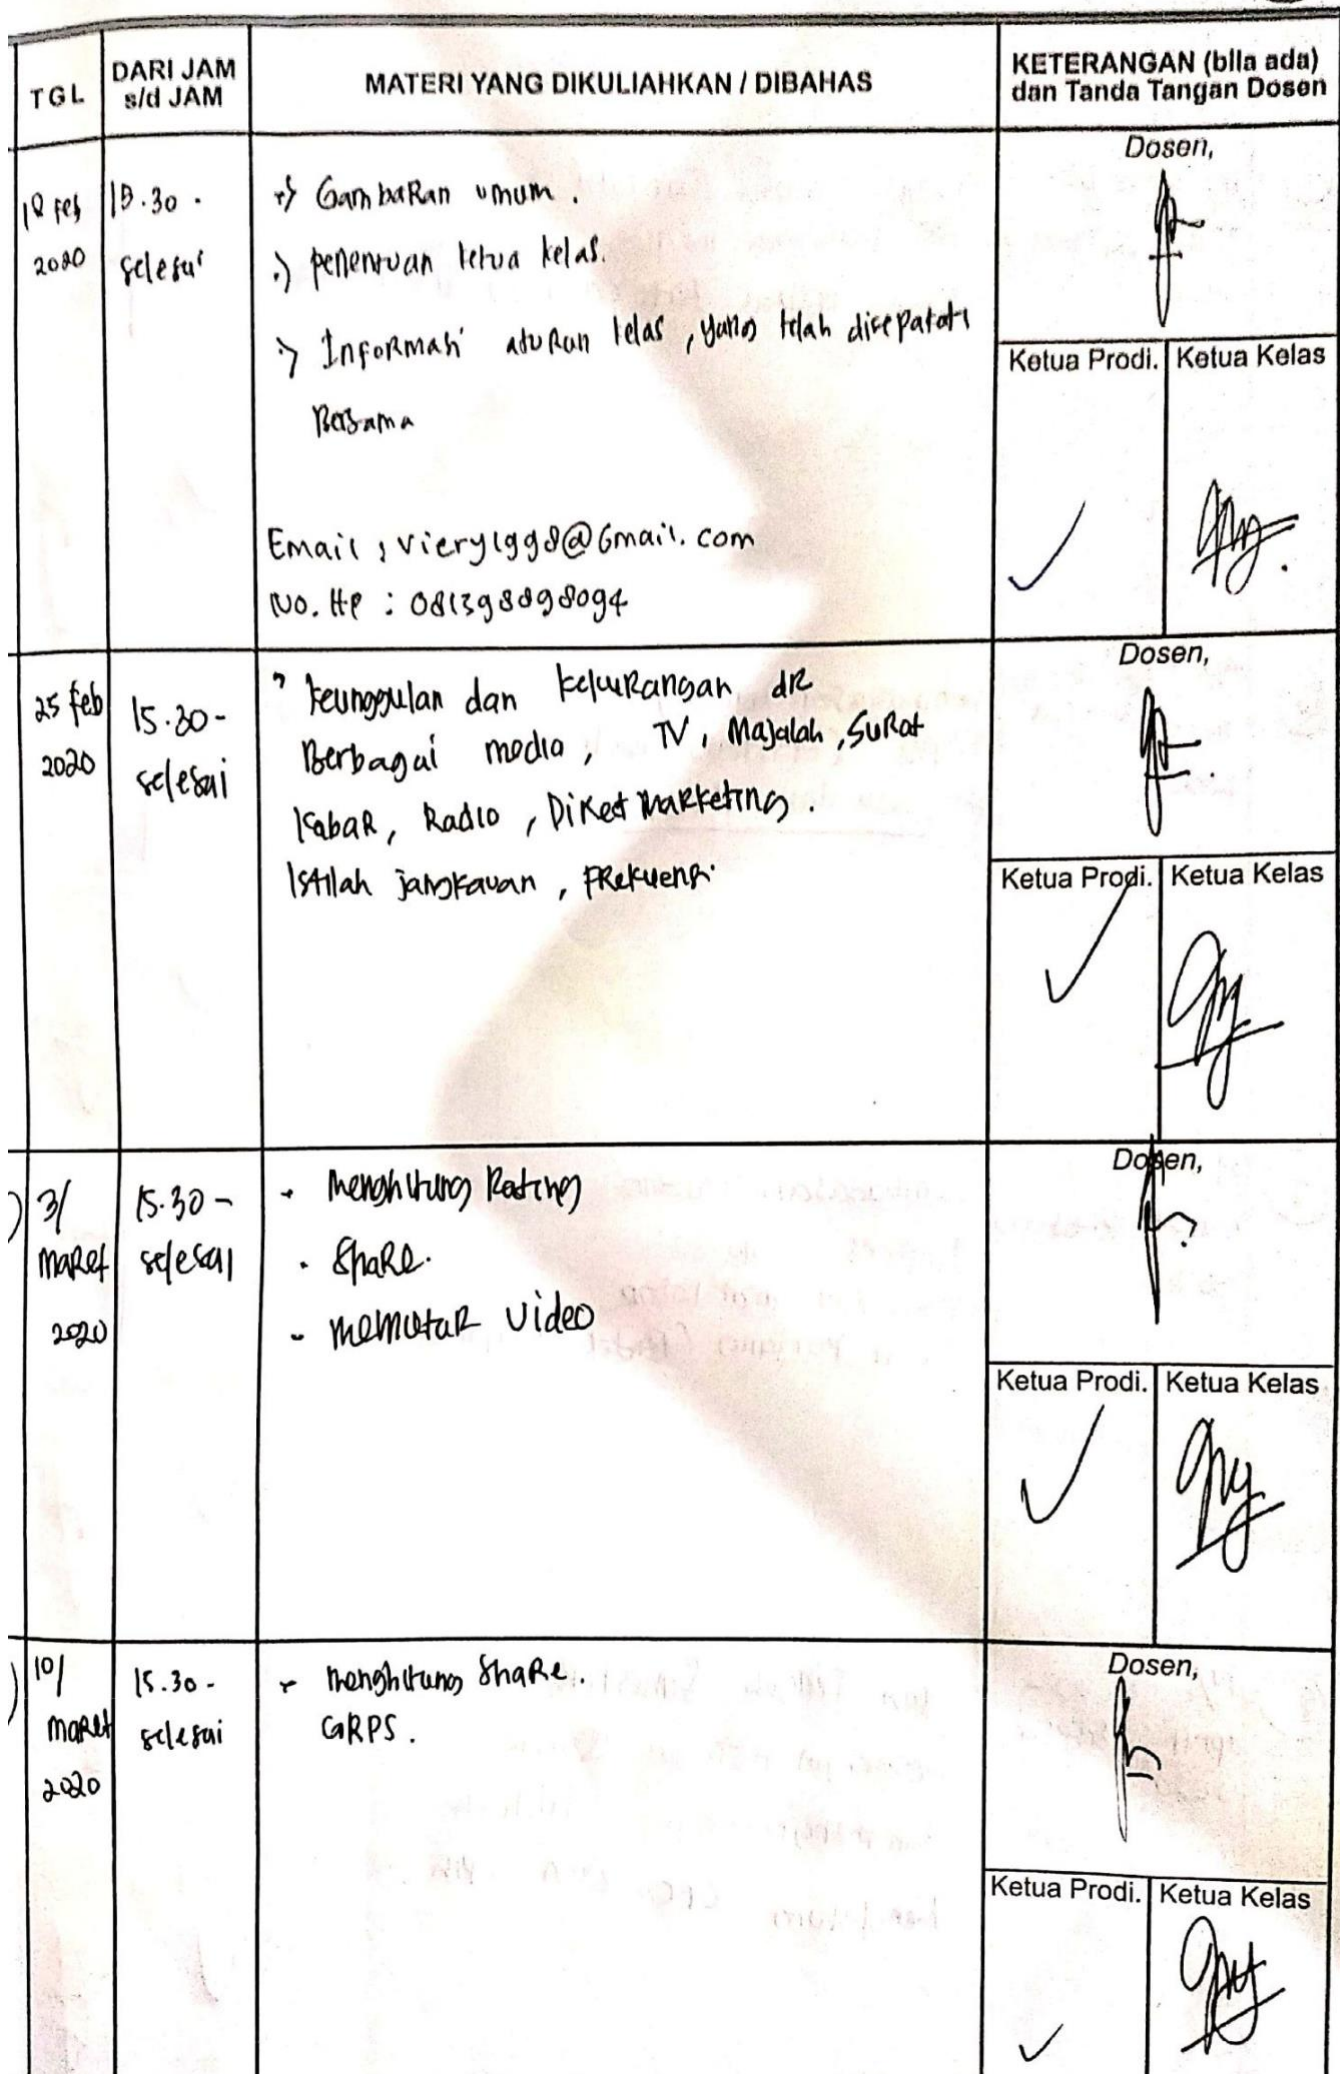 TGL
DARI JAM
s/d JAM
MATERI YANG DIKULIAHKAN / DIBAHAS
KETERANGAN (bila ada)
dan Tanda Tangan Dosen
18 Feb
2020
15.30 -
selesai
Gambaran umum.
penentuan ketua kelas.
Informasi aturan kelas, yang telah disepakati
Bersama
Email : viery1998@Gmail.com
No. HP : 081398898094
Dosen,
Ketua Prodi.
Ketua Kelas
25 feb
2020
15.30 -
selesai
keunggulan dan kekurangan dR
Berbagai media, TV, Majalah, Surat
Kabar, Radio, Direct Marketing.
Istilah jangkauan, Frekuensi
Dosen,
Ketua Prodi.
Ketua Kelas
3/
Maret
2020
15.30 -
selesai
- Menghitung Rating
- Share.
- Memutar video
Dosen,
Ketua Prodi.
Ketua Kelas
10/
maret
2020
15.30 -
selesai
- menghitung Share.
GRPS.
Dosen,
Ketua Prodi.
Ketua Kelas